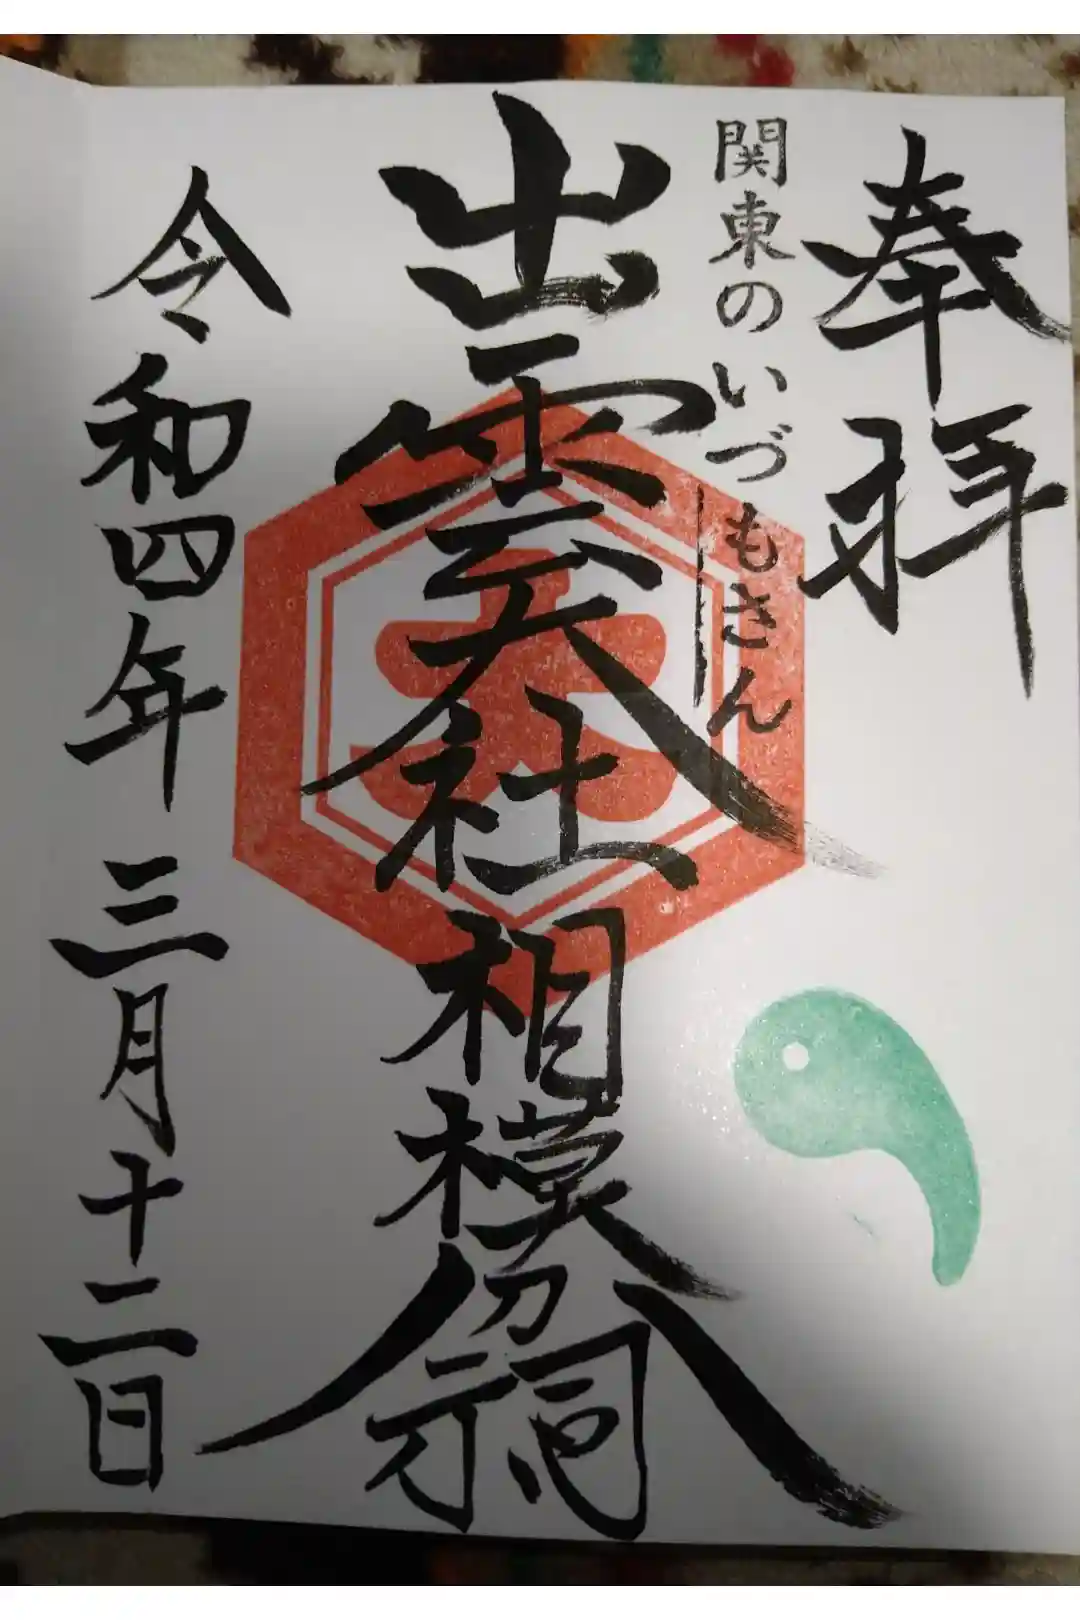 奉拝
関東のいづもさん
出雲大社相模分祠
令和四年三月十二日
大